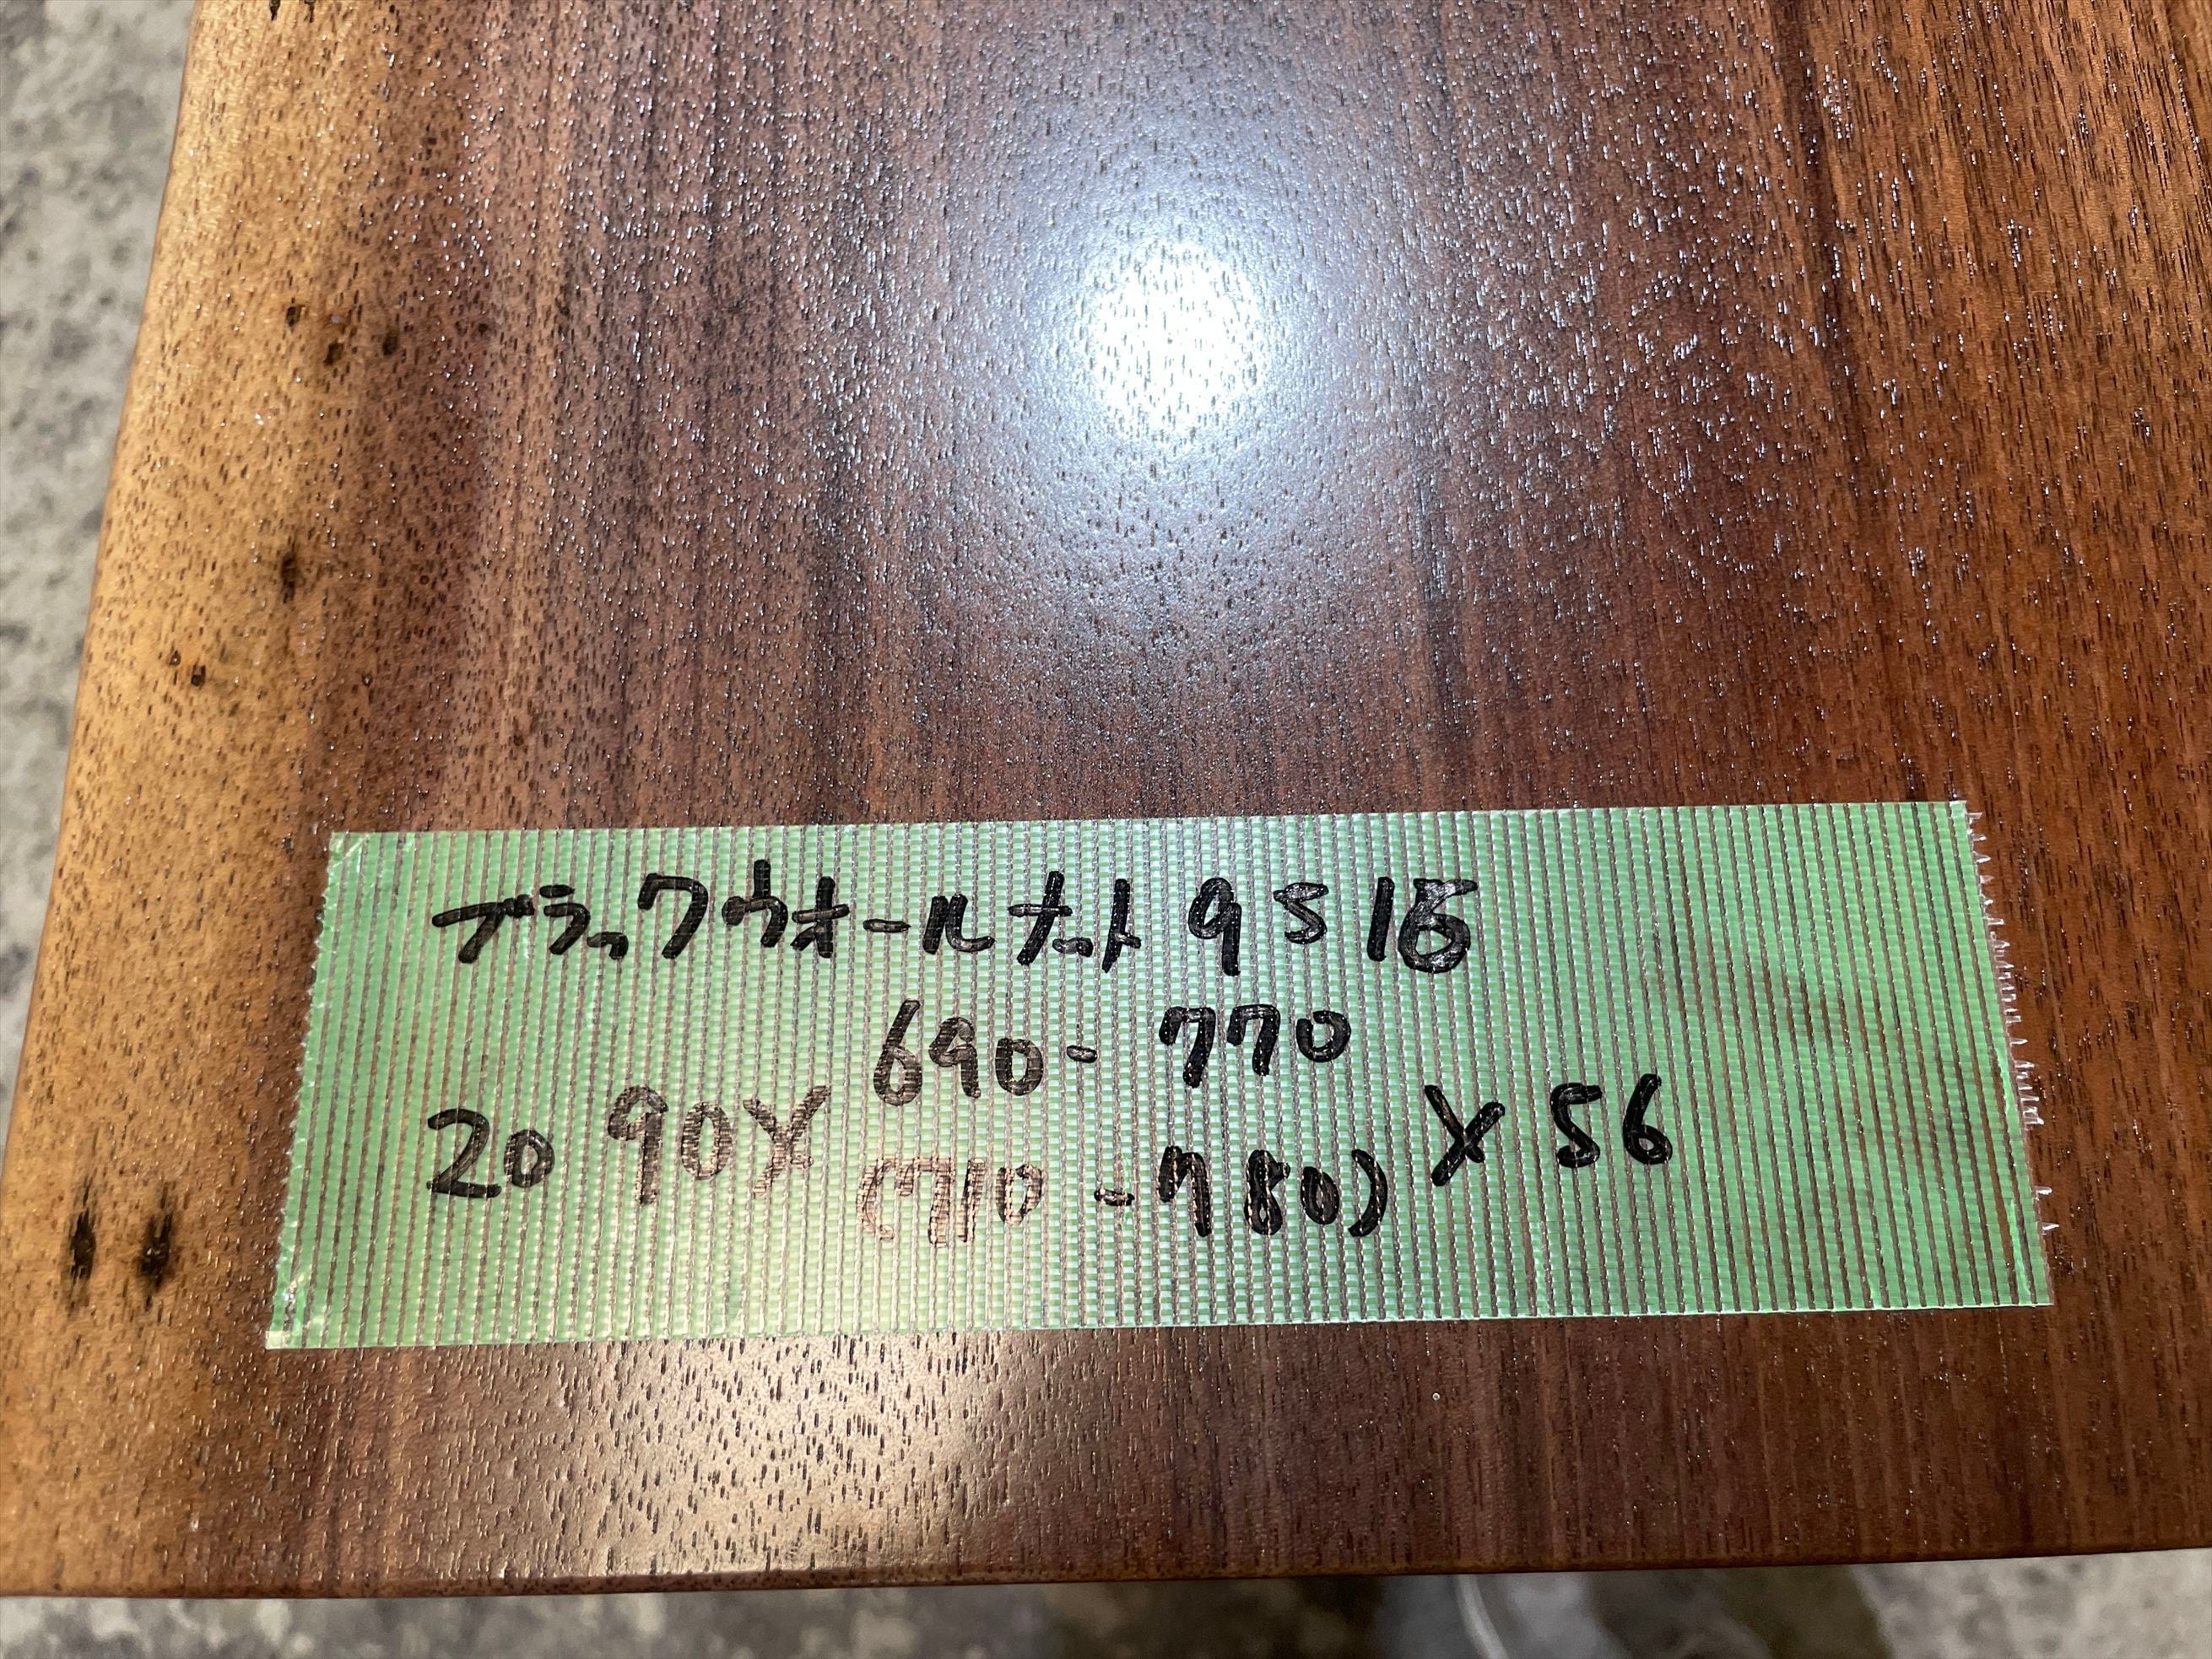 ブラックウォールナット 9S15
690-770
2090×      ×56
(710-780)